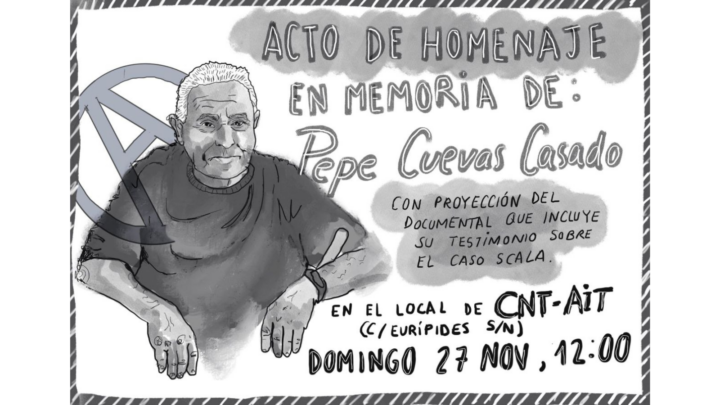 ACTO DE HOMENAJE
EN MEMORIA DE:
Pepe Cuevas Casado
CON PROYECCIÓN DEL
DOCUMENTAL QUE INCLUYE
SU TESTIMONIO SOBRE
EL CASO SCALA.
EN EL LOCAL DE CNT-AiT
(C/EURÍPIDES S/N)
DOMINGO 27 NOV, 12:00